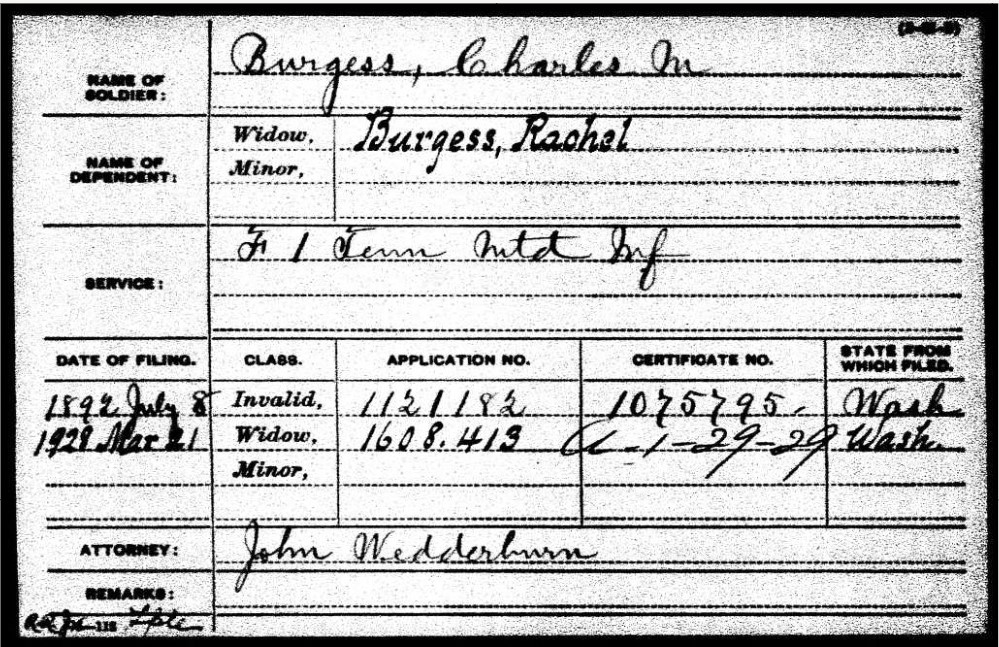 Burgess, Charles M
NAME OF
SOLDIER:
Widow, Burgess, Rachel
Minor,
NAME OF
DEPENDENT:
F 1 Tenn Mtd Inf
SERVICE:
DATE OF FILING. CLASS. APPLICATION NO. CERTIFICATE NO. STATE FROM WHICH FILED.
1892 July 8 Invalid, 1121182 1075795. Wash
1928 Mar 21 Widow, 1608.413 1-29-29 Wash.
Minor,
ATTORNEY: John Wedderburn
REMARKS: